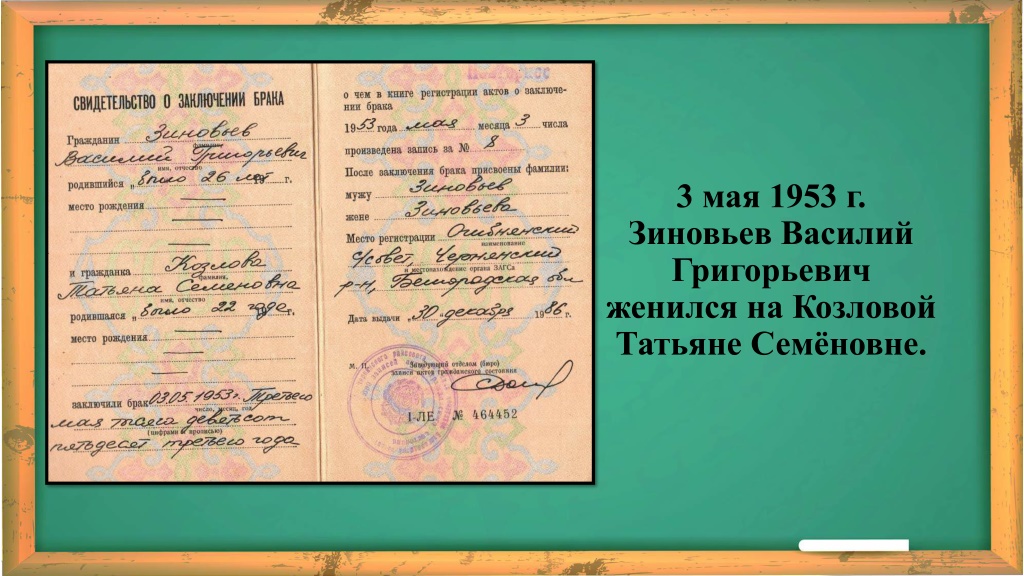 Повторное
СВИДЕТЕЛЬСТВО О ЗАКЛЮЧЕНИИ БРАКА
Гражданин Зиновьев
фамилия
Василий Григорьевич
имя, отчество
родившийся „ было 26 лет 19 г.
место рождения
и гражданка Козлова
фамилия,
Татьяна Семеновна
имя, отчество
родившаяся „ было 22 года г.
место рождения
заключили брак 03.05.1953г. Третьего
число, месяц, год
мая тысяча девятьсот
(цифрами и прописью)
пятьдесят третьего года
о чем в книге регистрации актов о заключе-
нии брака
1953 года мая месяца 3 числа
произведена запись за № 8
После заключения брака присвоены фамилии:
мужу Зиновьев
жене Зиновьева
Место регистрации
наименование
с/совет, Чернянский
и местонахождение органа ЗАГСа
р-н, Белгородская обл
Дата выдачи „30 „ декабря 1986 г.
М. П.
Заведующий отделом (бюро)
записи актов гражданского состояния
I-ЛЕ № 464452
3 мая 1953 г.
Зиновьев Василий
Григорьевич
женился на Козловой
Татьяне Семёновне.